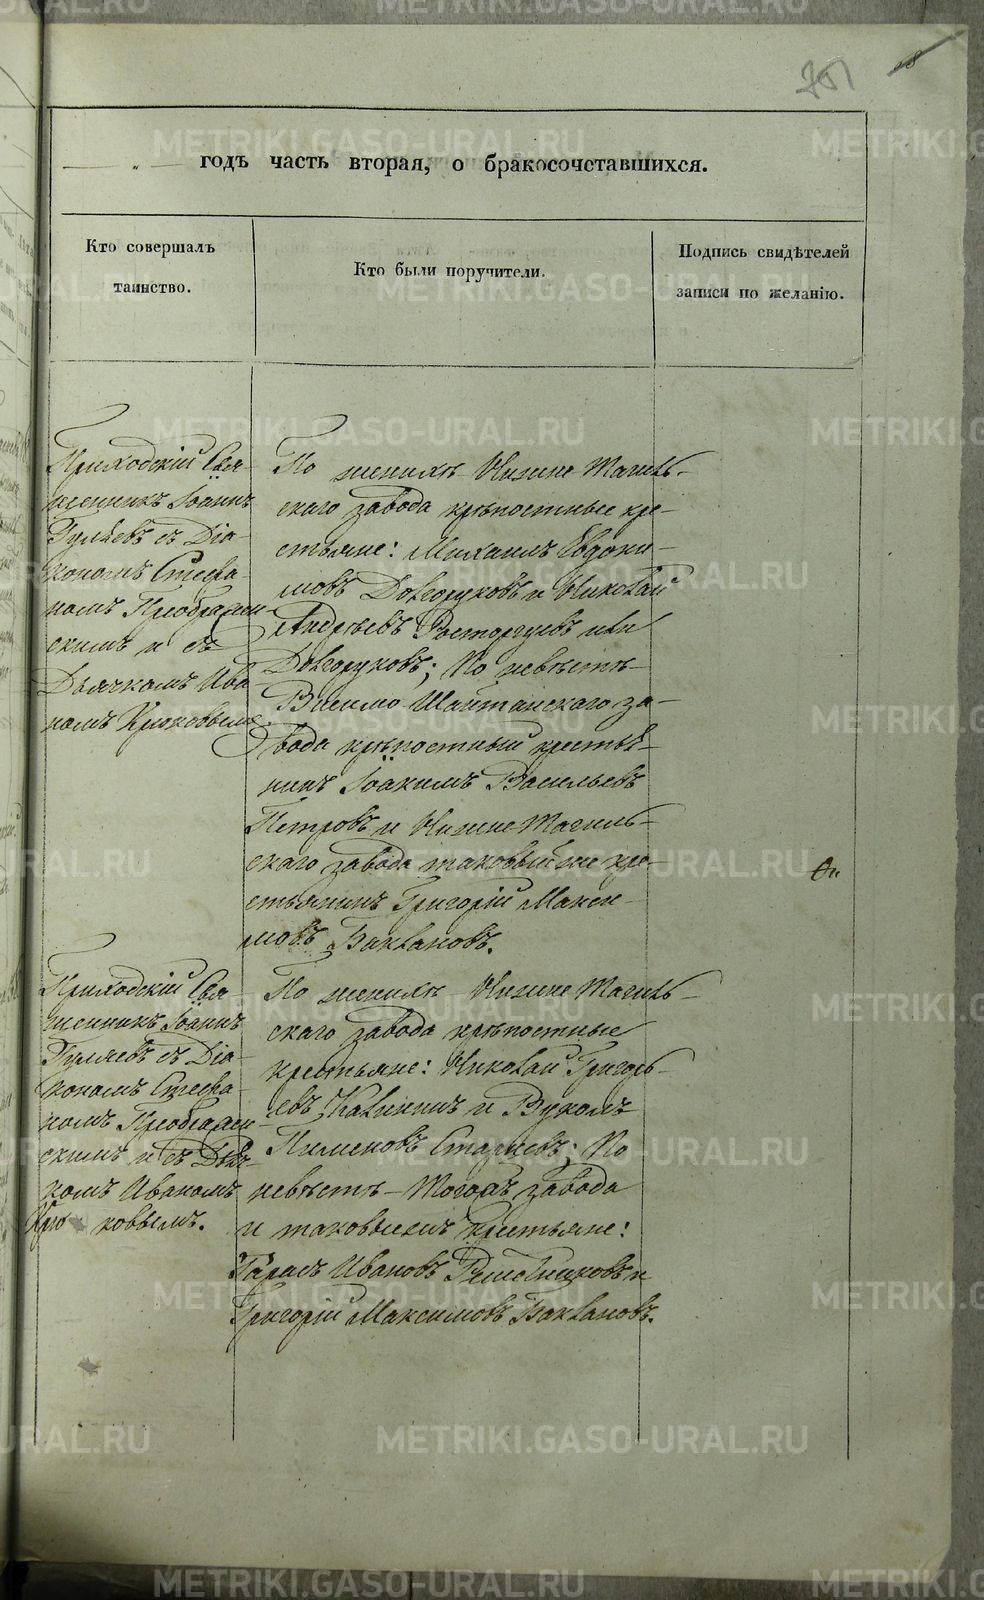 751
годъ часть вторая, о бракосочетавшихся.
Кто совершалъ
таинство.
Кто были поручители.
Подпись свидѣтелей
записи по желанію.
Приходскій Свя-
щенникъ Іоаннъ
Гуляевъ съ Діа-
кономъ Стефа-
номъ Преображен-
скимъ и съ
Дьячкомъ Ива-
номъ Крюковымъ.
По женихѣ Нижне Тагиль-
скаго завода крѣпостные кре-
стьяне: Михаилъ Евдоки-
мовъ Долгоруковъ и Николай
Андреевъ Расторгуевъ или
Долгоруковъ; По невѣстѣ
Висимо Шайтанскаго за-
вода крѣпостный крестья-
нинъ Іоакимъ Васильевъ
Петровъ и Нижне Тагиль-
скаго завода таковый же кре-
стьянинъ Григорій Макси-
мовъ Баклановъ.
Приходскій Свя-
щенникъ Іоаннъ
Гуляевъ съ Діа-
кономъ Стефа-
номъ Преображен-
скимъ и съ Дьяч-
комъ Иваномъ
Крю ковымъ.
По женихѣ Нижне Тагиль-
скаго завода крѣпостные
крестьяне: Николай Григорь-
евъ Калининъ и Вуколъ
Пименовъ Старцевъ; По
невѣстѣ – Тогожъ завода
и таковыежъ крестьяне:
Тарасъ Ивановъ Решетниковъ и
Григорій Максимовъ Баклановъ.
METRIKI.GASO-URAL.RU